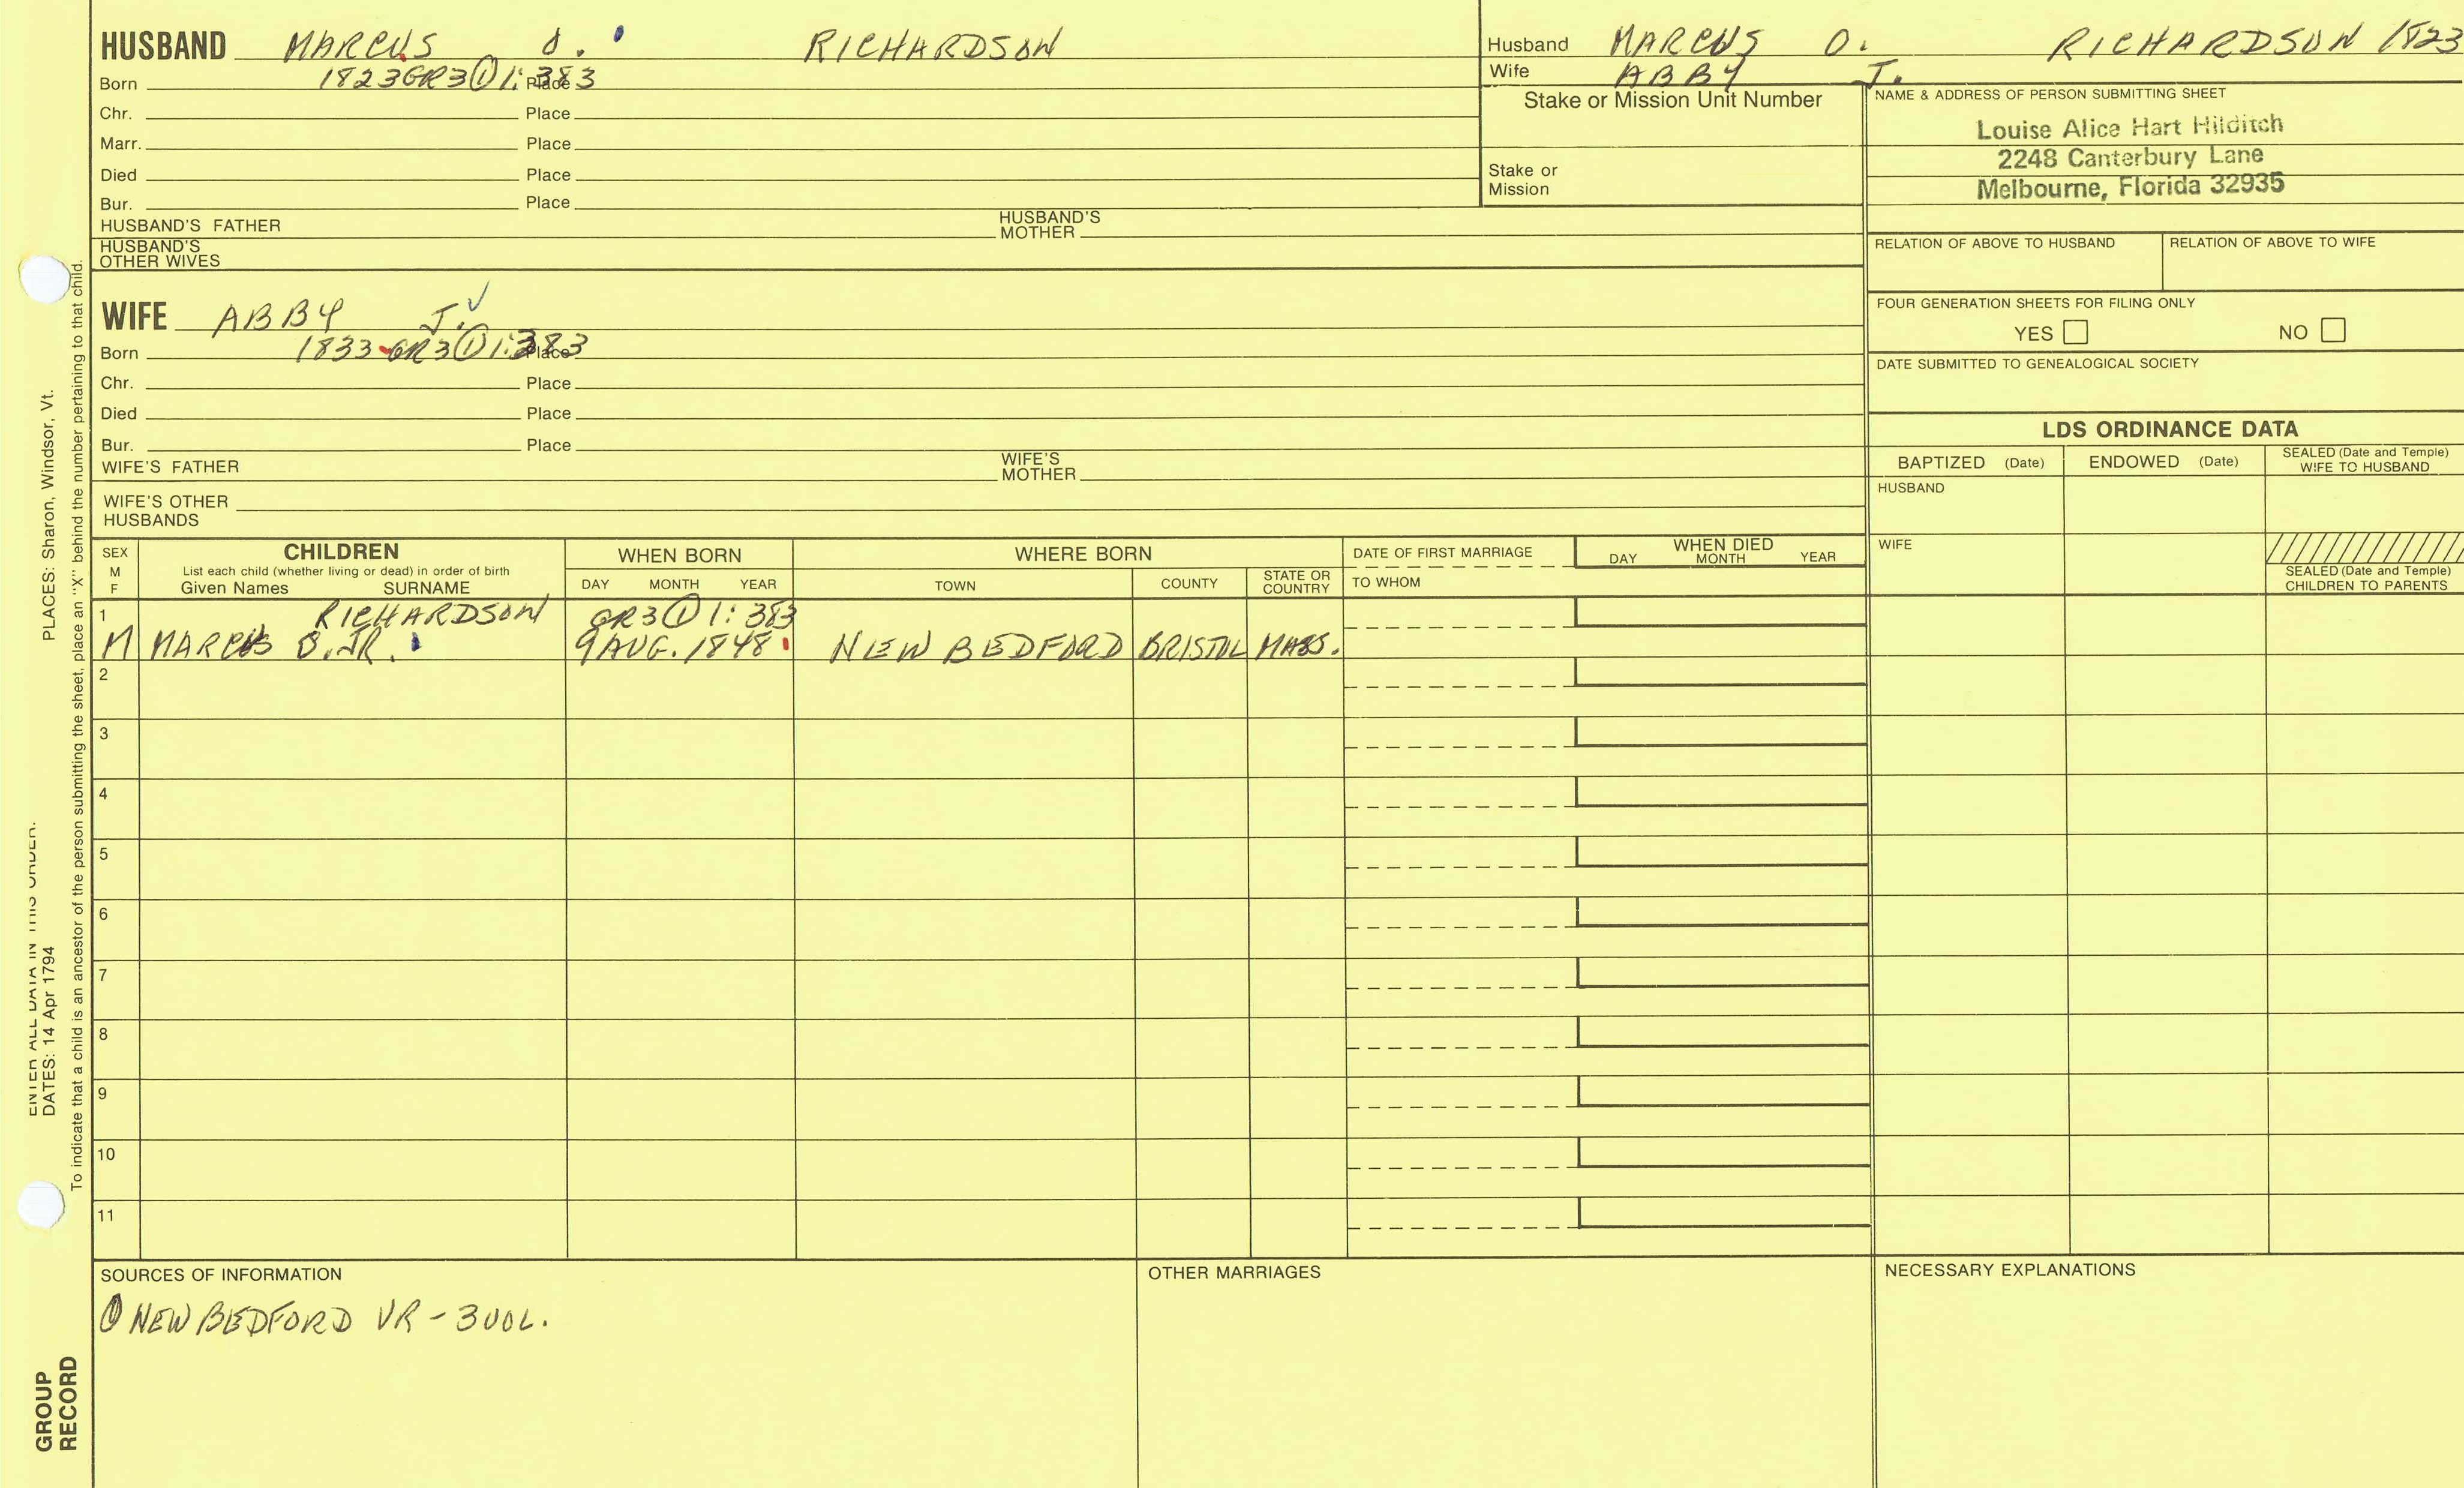 HUSBAND MARCUS O. RICHARDSON
Born 1823 GR3 ① 1:383 Place
Chr. Place
Marr. Place
Died Place
Bur. Place
HUSBAND'S FATHER HUSBAND'S MOTHER
HUSBAND'S OTHER WIVES
Husband MARCUS O. RICHARDSON 1823
Wife ABBY J.
Stake or Mission Unit Number
Stake or Mission
NAME & ADDRESS OF PERSON SUBMITTING SHEET
Louise Alice Hart Hilditch
2248 Canterbury Lane
Melbourne, Florida 32935
RELATION OF ABOVE TO HUSBAND RELATION OF ABOVE TO WIFE
FOUR GENERATION SHEETS FOR FILING ONLY
YES NO
DATE SUBMITTED TO GENEALOGICAL SOCIETY
WIFE ABBY J. ✓
Born 1833 GR3 ① 1:383 Place
Chr. Place
Died Place
Bur. Place
WIFE'S FATHER WIFE'S MOTHER
WIFE'S OTHER HUSBANDS
LDS ORDINANCE DATA
BAPTIZED (Date) ENDOWED (Date) SEALED (Date and Temple) WIFE TO HUSBAND
HUSBAND
WIFE
SEALED (Date and Temple) CHILDREN TO PARENTS
SEX M F
CHILDREN
List each child (whether living or dead) in order of birth
Given Names SURNAME
WHEN BORN
DAY MONTH YEAR
WHERE BORN
TOWN COUNTY STATE OR COUNTRY
DATE OF FIRST MARRIAGE
TO WHOM
WHEN DIED
DAY MONTH YEAR
1 RICHARDSON GR3 ① 1:383
M MARCUS B. JR. 9 AUG. 1848 NEW BEDFORD BRISTOL MASS.
2
3
4
5
6
7
8
9
10
11
SOURCES OF INFORMATION
① NEW BEDFORD VR - 3 VOL.
OTHER MARRIAGES
NECESSARY EXPLANATIONS
ENTER ALL DATA IN THIS ORDER.
DATES: 14 Apr 1794 PLACES: Sharon, Windsor, Vt.
To indicate that a child is an ancestor of the person submitting the sheet, place an "X" behind the number pertaining to that child.
GROUP
RECORD